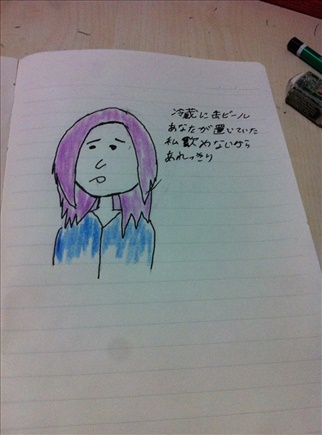 冷蔵に缶ビール
あなたが置いていた
私飲めないから
あれっきり